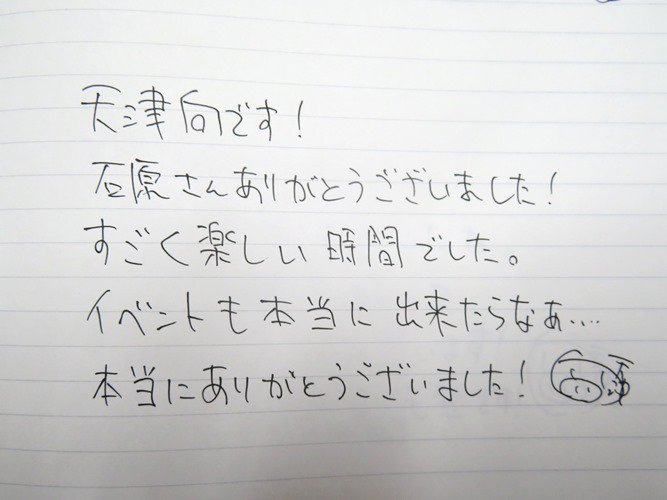 天津向です！
石原さんありがとうございました！
すごく楽しい時間でした。
イベントも本当に出来たらなぁ…
本当にありがとうございました！